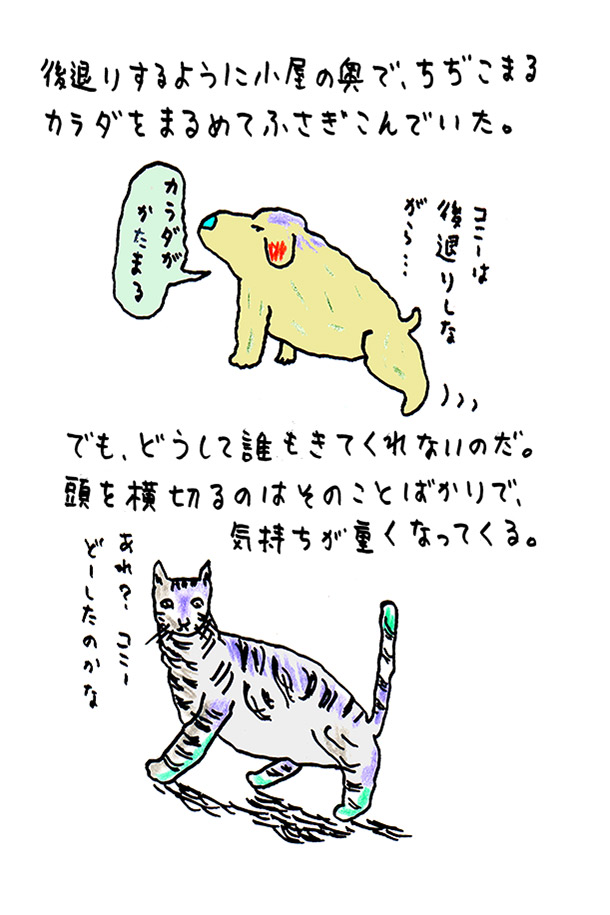 後退りするように小屋の奥で、ちぢこまる
カラダをまるめてふさぎこんでいた。
コニーは
後退りしな
がら…
カラダが
かたまる
でも、どうして誰もきてくれないのだ。
頭を横切るのはそのことばかりで、
気持ちが重くなってくる。
あれ?、コニー
どーしたのかな